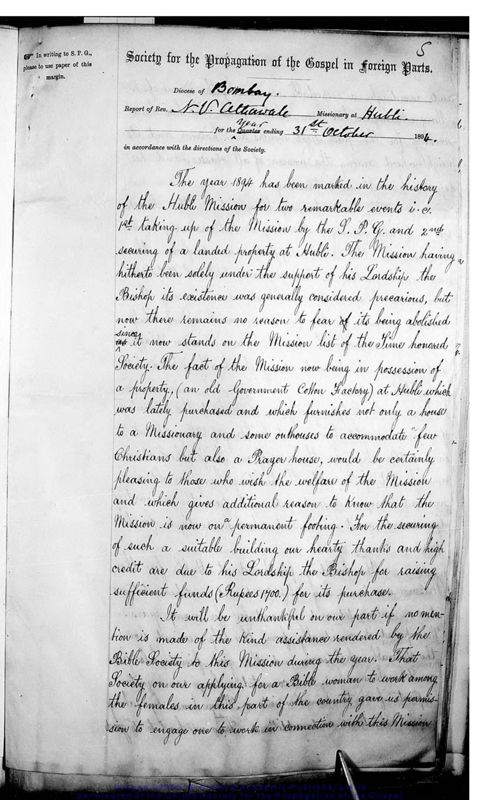 5
In writing to S. P. G.,
please to use paper of this
margin.
Society for the Propagation of the Gospel in Foreign Parts.
Diocese of Bombay.
Report of Rev. N. V. Athawale Missionary at Hubli.
Year
for the Quarter ending 31st October 1894.
in accordance with the directions of the Society.
The year 1894 has been marked in the history
of the Hubli Mission for two remarkable events i. e.
1st taking up of the Mission by the S. P. G. and 2nd
securing of a landed property at Hubli. The Mission having
hitherto been solely under the support of his Lordship the
Bishop its existence was generally considered precarious, but
now there remains no reason to fear of its being abolished
since
as it now stands on the Mission list of the Time honored
Society. The fact of the Mission now being in possession of
a property, (an old Government Cotton Factory) at Hubli which
was lately purchased and which furnishes not only a house
to a Missionary and some outhouses to accommodate a few
Christians but also a Prayer house, would be certainly
pleasing to those who wish the welfare of the Mission
and which gives additional reason to know that the
Mission is now on a permanent footing. For the securing
of such a suitable building our hearty thanks and high
credit are due to his Lordship the Bishop for raising
sufficient funds (Rupees 1700.) for its purchase.
It will be unthankful on our part if no men-
tion is made of the kind assistance rendered by the
Bible Society to this Mission during the year. That
Society on our applying for a Bible woman to work among
the females in this part of the country gave us permis-
sion to engage one to work in connection with this Mission